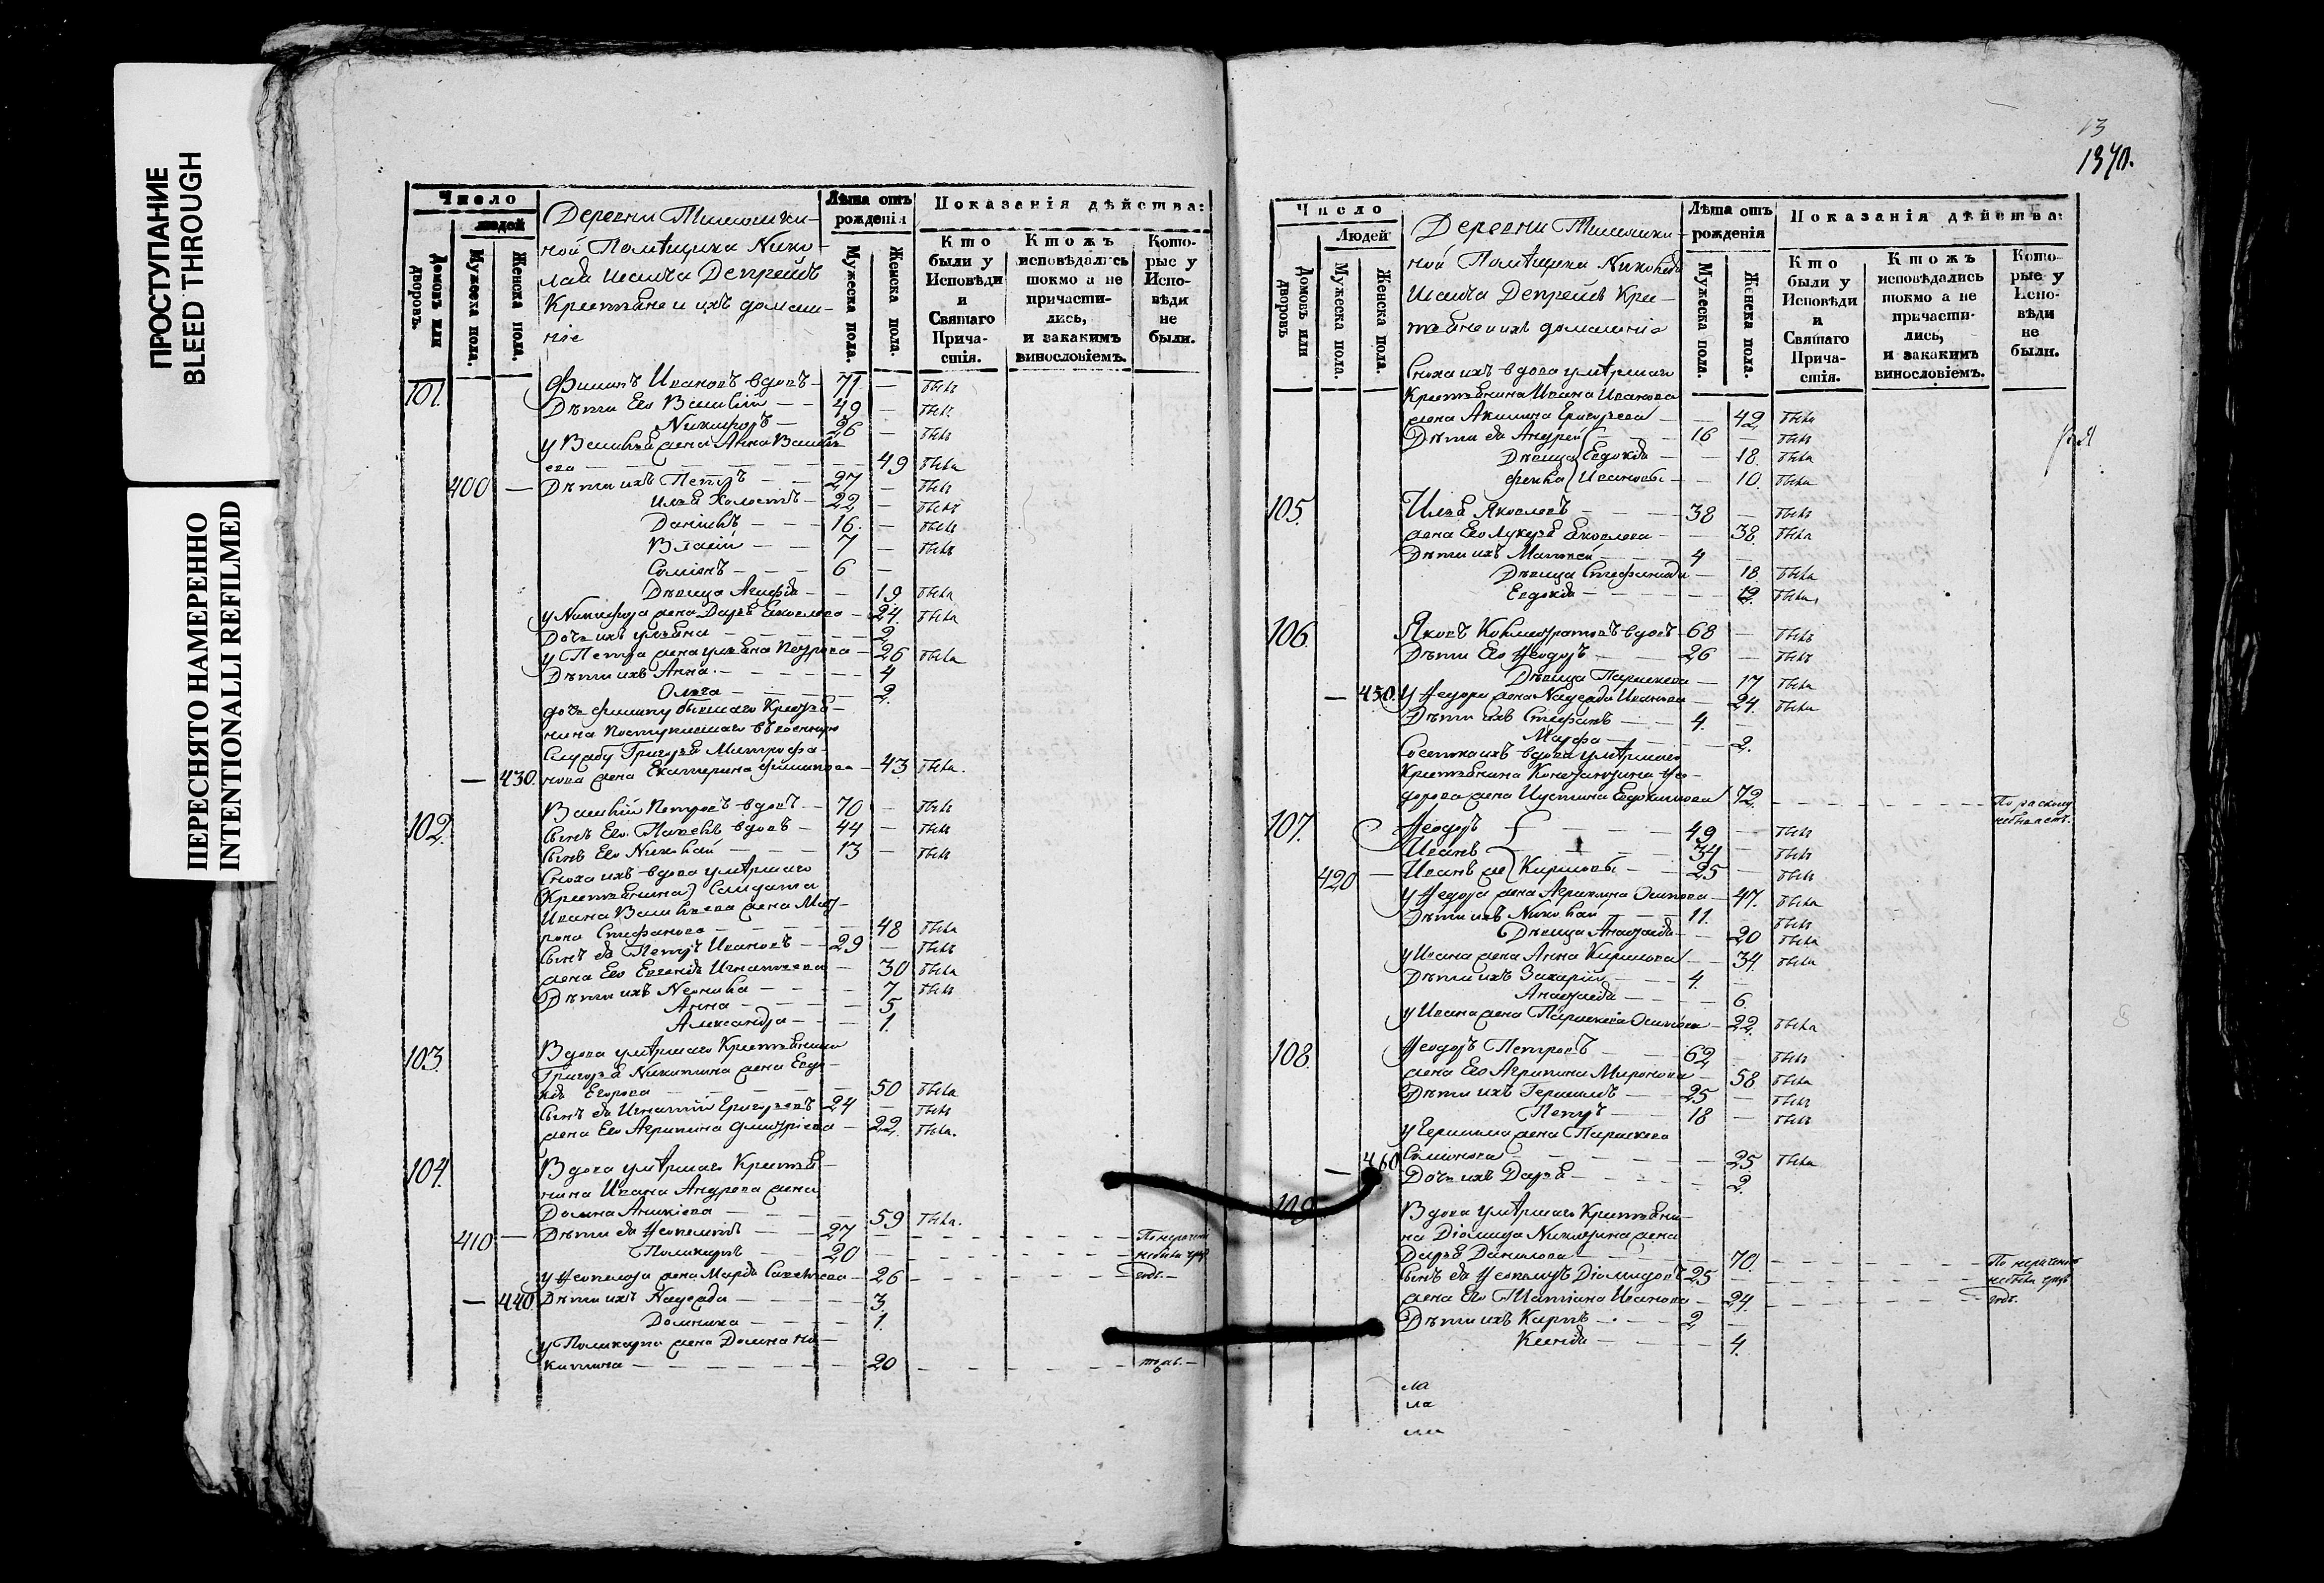 ПРОСТУПАНИЕ
BLEED THROUGH
ПЕРЕСНЯТО НАМЕРЕННО
INTENTIONALLI REFILMED
Число
людей
Домовъ или дворовъ.
Мужеска пола.
Женска пола.
Деревни Тимошки-
ной Помѣщика Нико-
лая Исаича Депрейсъ
Крестьяне и ихъ домаш-
ніе
Лѣта отъ рожденія
Мужеска пола.
Женска пола.
Показанія дѣйства:
Кто были у Исповѣди и Святаго Прича-стія.
Ктожъ исповѣдались токмо а не причасти-лись, и закакимъ винословіемъ.
Кото-рые у Испо-вѣди не были.
101. Филипъ Ивановъ вдовъ 71 — былъ
Дѣти Его Василій — 49 — былъ
Никифоръ — 26 — былъ
у Василья жена Анна Василь-
ева — 49 была
400 — Дѣти ихъ Петръ — 27 — былъ
Илья Холостъ — 22 — былъ
Даніилъ — 16 — былъ
Власій — 7 — былъ
Симіонъ — 6 —
Дѣвица Агафія — 19 была
у Никифора жена Дарья Яковлева — 24 была
Дочь ихъ Ульяна — 2
у Петра жена Ульяна Петрова — 26 была
Дѣти ихъ Анна — 4
Олга — 2
дочь Филипу бывшаго Крестья-
нина поступившаго въ военную
Службу Григорья Митрофа-
— 430 нова жена Екатерина Филипова — 43 была
102. Василій Петровъ вдовъ — 70 — былъ
Сынъ Его Павелъ вдовъ — 44 — былъ
Сынъ Его Николай — 13 — былъ
Сноха ихъ вдова умѣршаго
Крестьянина Солдата
Ивана Васильева жена Мат-
рона Стефанова — 48 была
Сынъ ея Петръ Ивановъ — 29 — былъ
жена Его Евгенія Игнатьева — 30 была
Дѣти ихъ Неонила — 7 былъ
Анна — 5
Александра — 1
103. Вдова умѣршаго Крестьянина
Григорья Никитина жена Евдо-
кія Егорова — 50 была
Сынъ ея Игнатій Григорьевъ 24 — былъ
жена Его Агрипина Дмитріева — 22 была
104. Вдова умѣршаго Крестья-
нина Ивана Андреева жена
Домна Аникіева — 59 была
410 — Дѣти ея — 27 —
Поликарпъ — 20 —
жена Марья Савельева — 26
— 440 Дѣти ихъ — 3
Домника — 1
у Поликарпа жена Домна Ни-
китина — 20
13
1370.
Число
Людей
Домовъ или дворовъ
Мужеска пола.
Женска пола.
Деревни Тимошки-
ной Помѣщика Николая
Исаича Депрейсъ Кре-
стьяне и ихъ домашніе
Лѣта отъ рожденія
Мужеска пола.
Женска пола.
Показанія дѣйства:
Кто были у Исповѣди и Святаго Прича-стія.
Ктожъ исповѣдались токмо а не причасти-лись, и закакимъ винословіемъ.
Кото-рые у Испо-вѣди не были.
Сноха ихъ вдова умѣршаго
Крестьянина Ивана Иванова
жена Акилина Григорьева — 42 была
Дѣти ея Андрей — 16 — былъ
Дѣвица Евдокія — 18 была
Фекла Ивановы — 10 была
105. Илья Яковлевъ — 38 — былъ
жена Его Лукерья Яковлева — 38 была
Дѣти ихъ Матвей — 4 —
Дѣвица Стефанида — 18 была
Евдокія — 12 была
106. Яковъ вдовъ 68 — былъ
Дѣти Его Ѳеодоръ — 26 — былъ
Дѣвица Параскева — 17 была
— 450 у Ѳедора жена Надежда Иванова — 24 была
Дѣти ихъ Стефанъ — 4 —
Марфа — 2
ихъ вдова умѣршаго
Крестьянина
дорова жена Иустина Евдокимова 72 — По расколу
107. Ѳеодоръ — 49 — былъ
Иванъ — 34 — былъ
420 — Иванъ же Кириловы — 25 — былъ
у Ѳедора жена Агрипина Осипова — 47 была
Дѣти ихъ Николай — 11 — былъ
Дѣвица Анастасія — 20 была
у Ивана жена Анна Кирилова — 34 была
Дѣти ихъ Захарій — 4 —
Анастасія — 6
у Ивана жена Параскева Осипова — 22 была
108. Ѳеодоръ Петровъ — 62 — былъ
жена Его Агрипина Миронова — 58 была
Дѣти ихъ Герасимъ — 25 — былъ
Петръ — 18 — былъ
у Герасима жена Параскева
— 460 Симіонова — 25 была
Дочь ихъ Дарья — 2
109. Вдова умѣршаго Крестьяни-
на Діомида жена
Дарья Данилова — 70
Сынъ ея Діомидовъ 25 —
жена Его Татіана Иванова — 24
Дѣти ихъ Карпъ — 2 —
Ксенія — 4